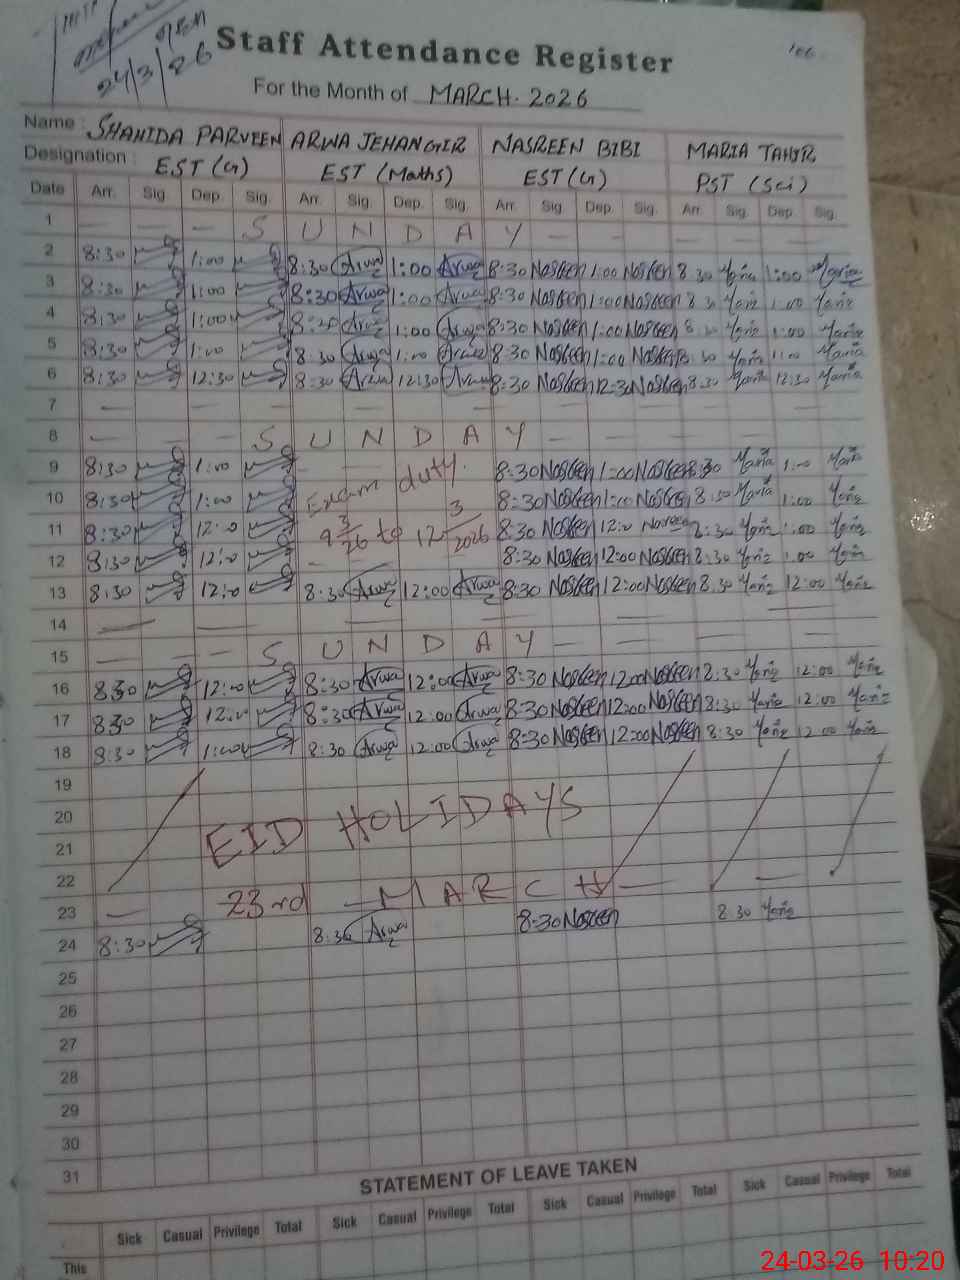 24/3/26
Staff Attendance Register
For the Month of MARCH. 2026
Name : SHAHIDA PARVEEN ARWA JEHANGIR NASREEN BIBI MARIA TAHIR
Designation : EST (G) EST (Maths) EST (G) PST (Sci)
Date Arr. Sig. Dep. Sig. Arr. Sig. Dep. Sig. Arr. Sig. Dep. Sig. Arr. Sig. Dep. Sig.
1 — — — S U N D A Y — — — — — —
2 8:30 1:00 8:30 Arwa 1:00 Arwa 8:30 Nasreen 1:00 Nasreen 8:30 Maria 1:00 Maria
3 8:30 1:00 8:30 Arwa 1:00 Arwa 8:30 Nasreen 1:00 Nasreen 8:30 Maria 1:00 Maria
4 8:30 1:00 8:30 Arwa 1:00 Arwa 8:30 Nasreen 1:00 Nasreen 8:30 Maria 1:00 Maria
5 8:30 1:00 8:30 Arwa 1:00 Arwa 8:30 Nasreen 1:00 Nasreen 8:30 Maria 1:00 Maria
6 8:30 12:30 8:30 Arwa 12:30 Arwa 8:30 Nasreen 12:30 Nasreen 8:30 Maria 12:30 Maria
7 — — — — — — — —
8 — — S U N D A Y — — — — — —
9 8:30 1:00 — — 8:30 Nasreen 1:00 Nasreen 8:30 Maria 1:00 Maria
10 8:30 1:00 Exam duty. 8:30 Nasreen 1:00 Nasreen 8:30 Maria 1:00 Maria
11 8:30 12:00 9 3/26 to 12 3/2026 8:30 Nasreen 12:00 Nasreen 8:30 Maria 1:00 Maria
12 8:30 12:00 — — 8:30 Nasreen 12:00 Nasreen 8:30 Maria 1:00 Maria
13 8:30 12:00 8:30 Arwa 12:00 Arwa 8:30 Nasreen 12:00 Nasreen 8:30 Maria 12:00 Maria
14 — — — — — — — —
15 — — — S U N D A Y — — — — —
16 8:30 12:00 8:30 Arwa 12:00 Arwa 8:30 Nasreen 12:00 Nasreen 8:30 Maria 12:00 Maria
17 8:30 12:00 8:30 Arwa 12:00 Arwa 8:30 Nasreen 12:00 Nasreen 8:30 Maria 12:00 Maria
18 8:30 1:00 8:30 Arwa 12:00 Arwa 8:30 Nasreen 12:00 Nasreen 8:30 Maria 12:00 Maria
19
20 EID HOLIDAYS
21
22
23 — 23rd — M A R C H — —
24 8:30 8:30 Arwa 8:30 Nasreen 8:30 Maria
25
26
27
28
29
30
31
STATEMENT OF LEAVE TAKEN
Sick Casual Privilege Total Sick Casual Privilege Total Sick Casual Privilege Total Sick Casual Privilege Total
This
24-03-26 10:20